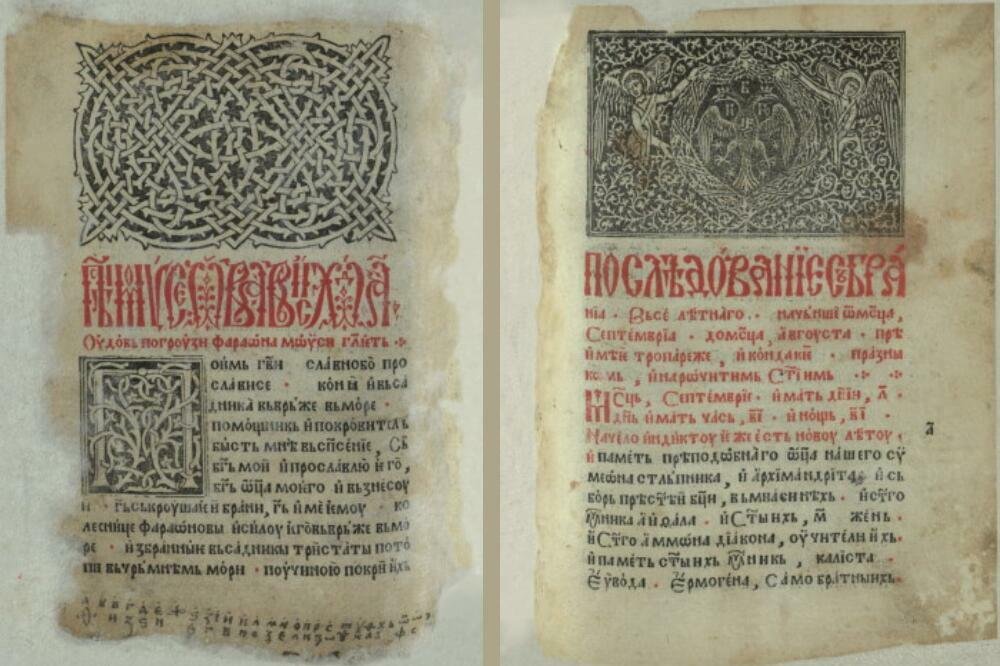 Оу҆довь погроузи фараѡна мѡѵси гл҃ѥть
оимь гв҃и славнобо̀ про
слависе · конꙗ̀ и҆ вьса
дника вьврьже вьморе ·
помощникь и҆ покровитель
бысть мнѣ вьсп҃сенїе , Сь
бг҃ь мои и҆ прославлю и҆ го̀ ,
бг҃ь ѿц҃а моѥго и҆ вьзнесоу
и · гь҃ скроушаѥи брани , гь҃ и҆ме ѥ҆моу · ко
лесницє фараѡновы и҆ силоу ѥ҆го вьврьже вьмо
ре · и҆збранныи҆ вьсадникы трїстаты пото
пи вьчрьмнѣмь мори · поучиною покри и҆хь
ПОСЛѢДОВАНЇЕ СЬБРА
нїа · Вьсе лѣтнаго · начьнше ѿмс҃ца ,
Септемврїа · домс҃ца , а҆вгоуста · прѣ
и҆мѣѥ тропареже , и҆ кондакїе · празны
комь , и҆ нарочитимь Ст҃ і имь
Мс҃ць , Септемврїе · и҆мать дн҃їи , л҃ ·
дн҃ь и҆мать чась , в҃і · и҆ нощь , в҃і ·
Начело и҆ндиктоу и҆же ѥ҆сть новоу лѣтоу ,
и҆ паметь прѣподобнаго ѿц҃а нашего сѵ
меѡна стльпника , и҆ а҆рхїмандрїта · и҆ сь
борь прѣст҃ѣи бц҃и , вьмиасинѣхь · и҆ ст҃го
мч҃ника а҆иѳала · и҆ Ст҃ыихь , м҃ жень ·
и҆ Ст҃го а҆ммѡна дїакона , оу҆чителꙗ и҆хь ·
и҆ паметь ст҃ыихь мч҃никь , каліста
Єѵвода · Єрмогена , Само братныихь
а҃